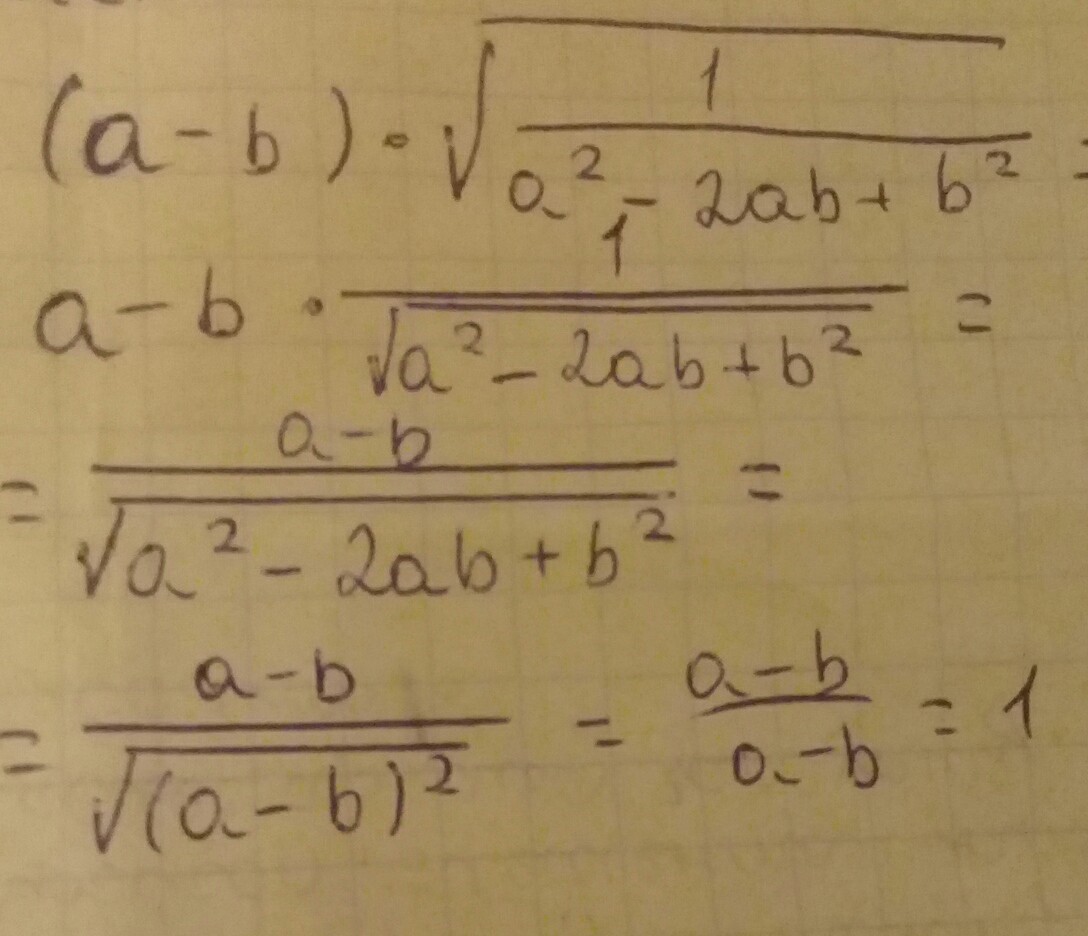 (a-b)·√(1/(a²-2ab+b²)) =
a-b · 1/√(a²-2ab+b²) =
= (a-b)/√(a²-2ab+b²) =
= (a-b)/√((a-b)²) = (a-b)/(a-b) = 1